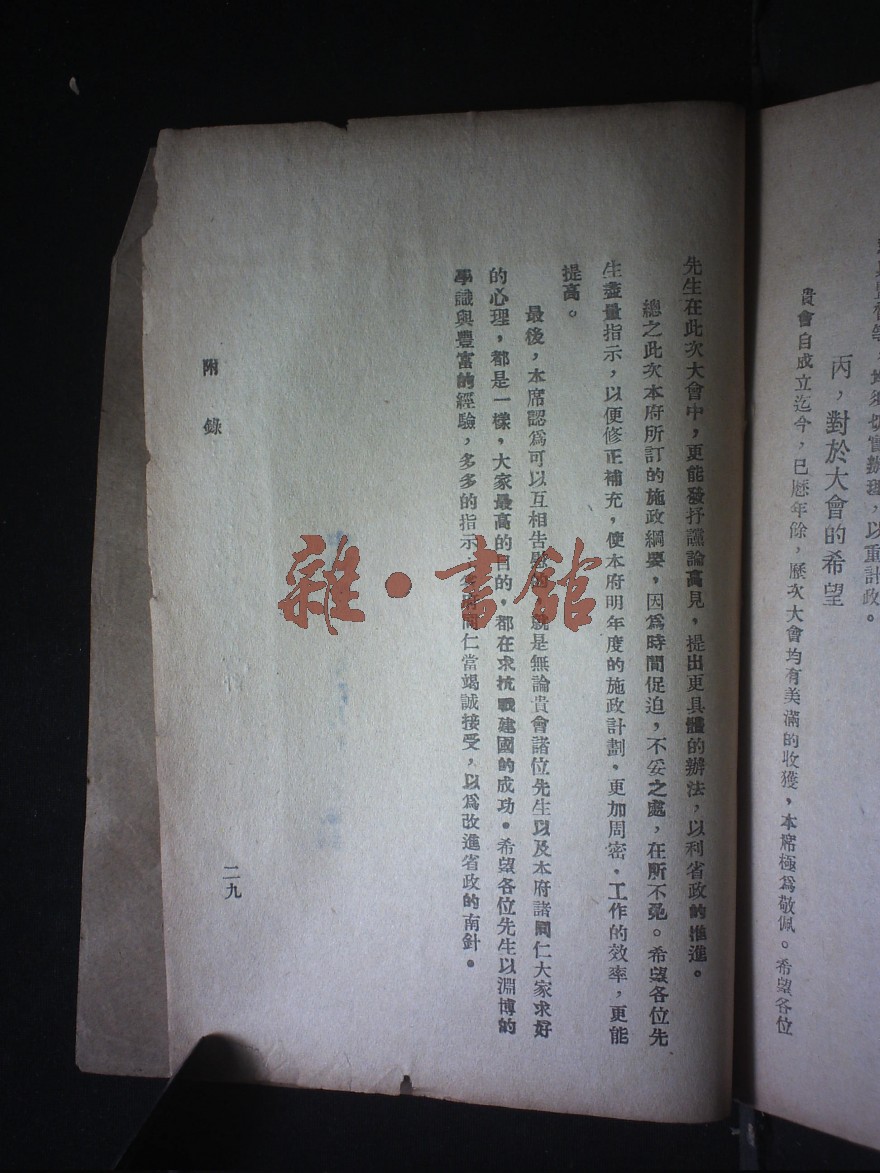 切實辦理，以重計政。
丙，對於大會的希望
貴會自成立迄今，已歷年餘，歷次大會均有美滿的收獲，本席極爲敬佩。希望各位
先生在此次大會中，更能發抒讜論高見，提出更具體的辦法，以利省政的推進。
總之此次本府所訂的施政綱要，因爲時間促迫，不妥之處，在所不免。希望各位先
生盡量指示，以便修正補充，使本府明年度的施政計劃。更加周密。工作的效率，更能
提高。
最後，本席認爲可以互相告慰的 就是無論貴會諸位先生以及本府諸同仁大家求好
的心理，都是一樣，大家最高的目的，都在求抗戰建國的成功。希望各位先生以淵博的
學識與豐富的經驗，多多的指示，本府同仁當竭誠接受，以爲改進省政的南針。
附錄
二九
雜·書館